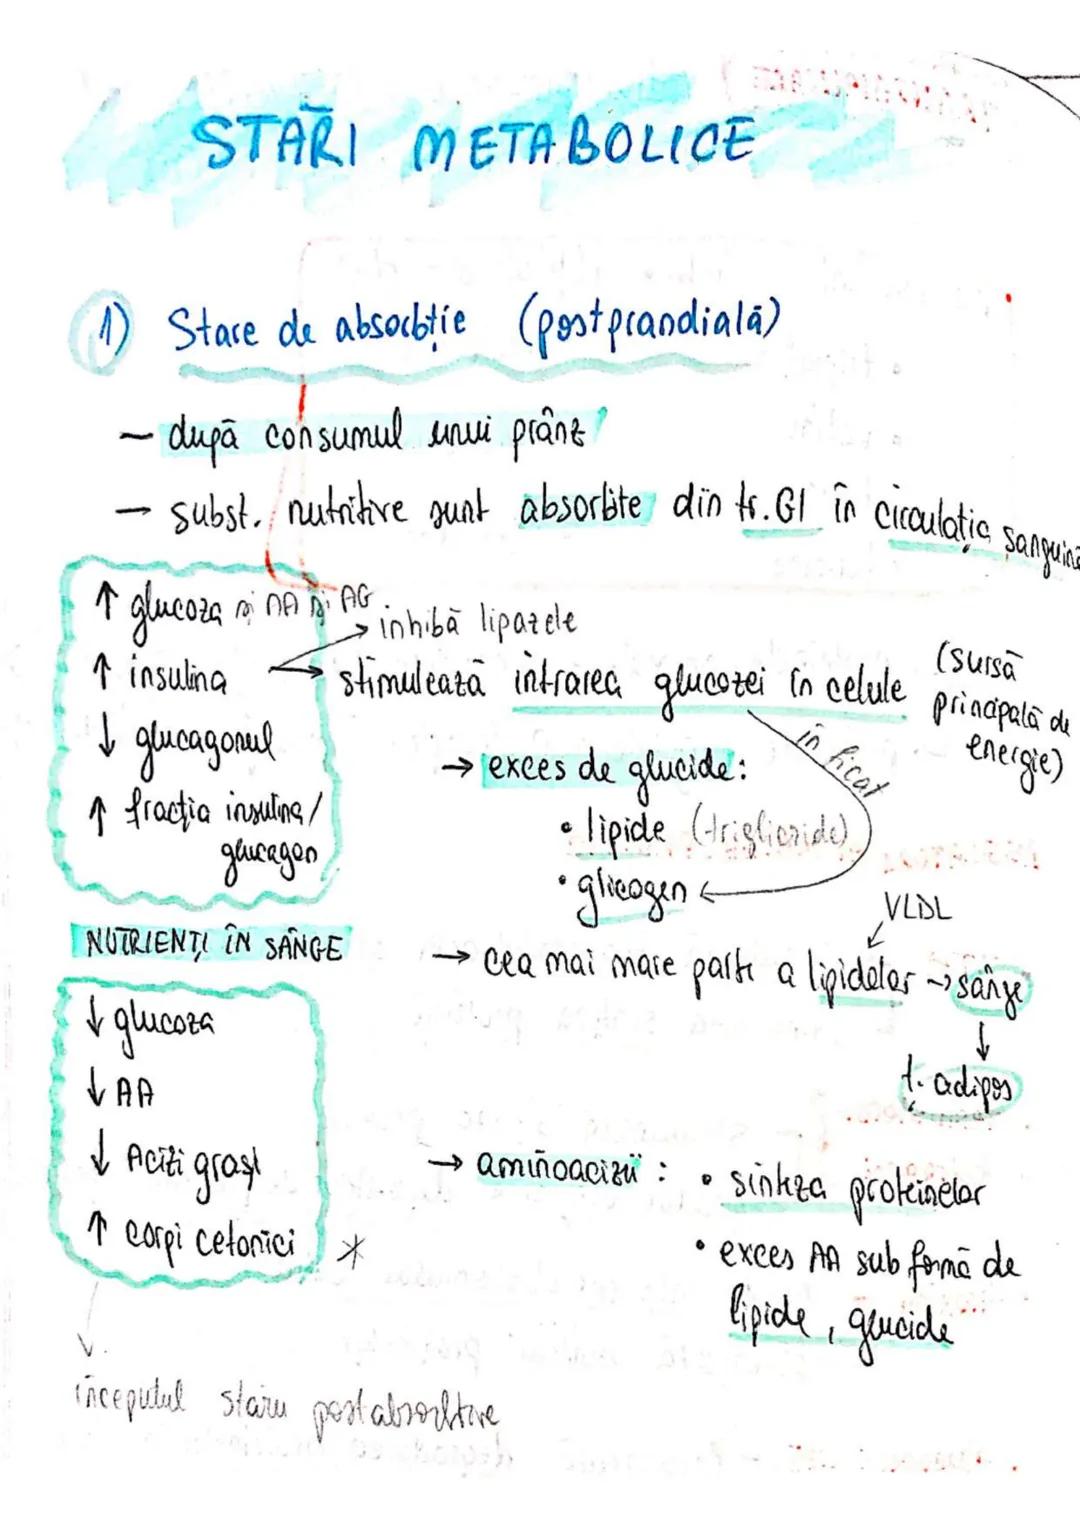 STĂRI METABOLICE
1) Stare de absorbție (postprandială)
– după consumul unui prânz
– subst. nutritive sunt absorbite din tr. GI în circulația sanguină
↑ glucoza și AA și AG
↑ insulina
↓ glucagonul
↑ fracția insulina/
glucagon
→ inhibă lipazele
→ stimulează intrarea glucozei în celule (sursă
principală de
energie)
în ficat
→ exces de glucide:
• lipide (trigliceride)
• glicogen ←
NUTRIENȚI ÎN SÂNGE
VLDL
→ cea mai mare parte a lipidelor → sânge
↓
ț. adipos
↓ glucoza
↓ AA
↓ Acizi grași
↑ corpi cetonici *
→ aminoacizii : • sinteza proteinelor
• exces AA sub formă de
lipide, glucide
începutul stării postabsorbtive